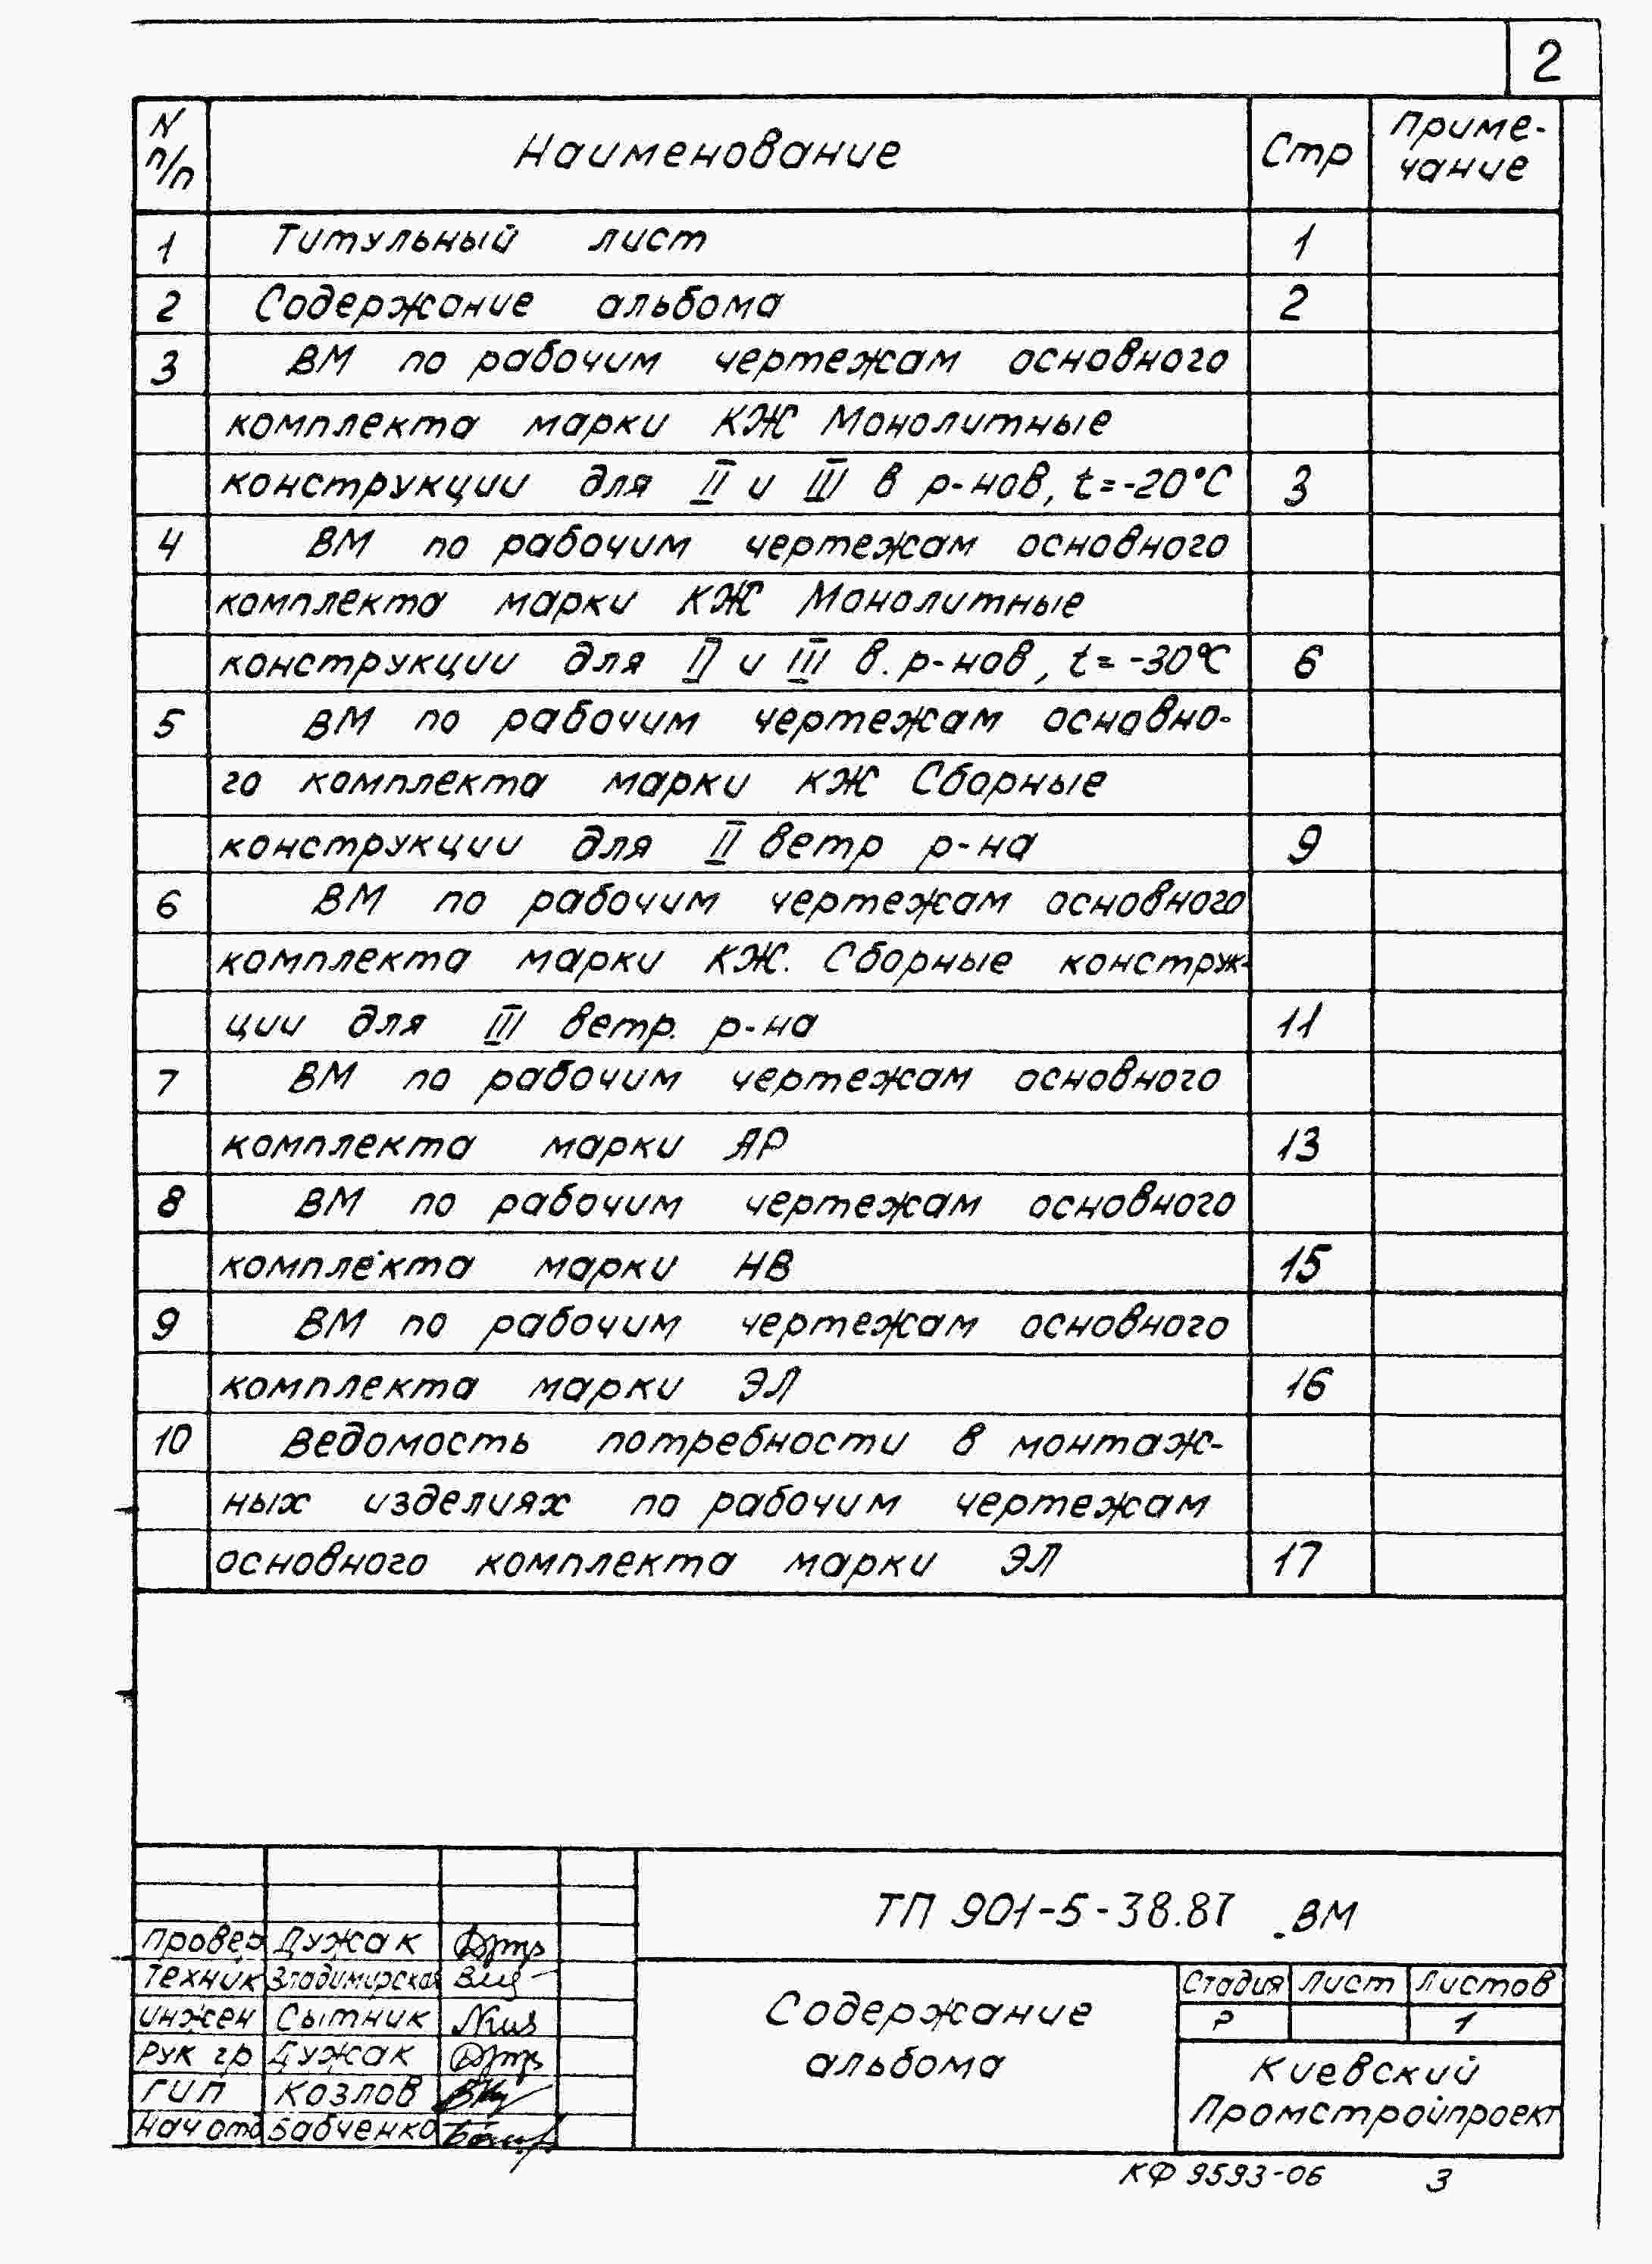 2
N п/п Наименование Стр Приме-
чание
1 Титульный лист 1
2 Содержание альбома 2
3 ВМ по рабочим чертежам основного
комплекта марки КЖ Монолитные
конструкции для II и III в р-нов, t=-20°С 3
4 ВМ по рабочим чертежам основного
комплекта марки КЖ Монолитные
конструкции для II и III в. р-нов, t=-30°С 6
5 ВМ по рабочим чертежам основно-
го комплекта марки КЖ Сборные
конструкции для II ветр р-на 9
6 ВМ по рабочим чертежам основного
комплекта марки КЖ. Сборные конструк-
ции для III ветр. р-на 11
7 ВМ по рабочим чертежам основного
комплекта марки АР 13
8 ВМ по рабочим чертежам основного
комплекта марки НВ 15
9 ВМ по рабочим чертежам основного
комплекта марки ЭЛ 16
10 Ведомость потребности в монтаж-
ных изделиях по рабочим чертежам
основного комплекта марки ЭЛ 17
ТП 901-5-38.87 .ВМ
Провер Дужак
Техник Владимирская
Инжен Сытник
Рук гр Дужак
ГИП Козлов
Нач отд Бабченко
Содержание
альбома
Стадия Лист Листов
Р 1
Киевский
Промстройпроект
КФ 9593-06 3